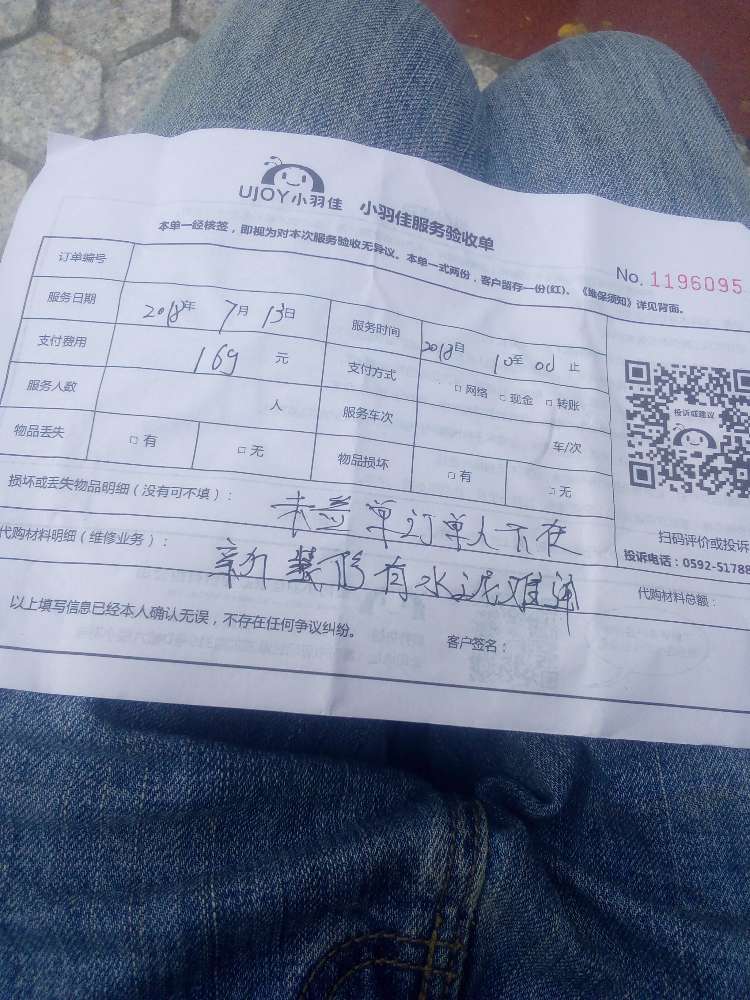 UJOY小羽佳 小羽佳服务验收单
本单一经核签，即视为对本次服务验收无异议。本单一式两份，客户留存一份(红)。《维保须知》详见背面。
No. 1196095
订单编号
服务日期 2018年 7月 13日 服务时间 2018自 10至 00止
支付费用 169 元 支付方式 □网络 □现金 □转账
服务人数 人 服务车次 车/次
物品丢失 □有 □无 物品损坏 □有 □无
投诉或建议
损坏或丢失物品明细（没有可不填）： 未签单订单人不在
扫码评价或投诉
投诉电话：0592-51788
代购材料明细（维修业务）： 装修有水泥难通
代购材料总额：
以上填写信息已经本人确认无误，不存在任何争议纠纷。 客户签名：